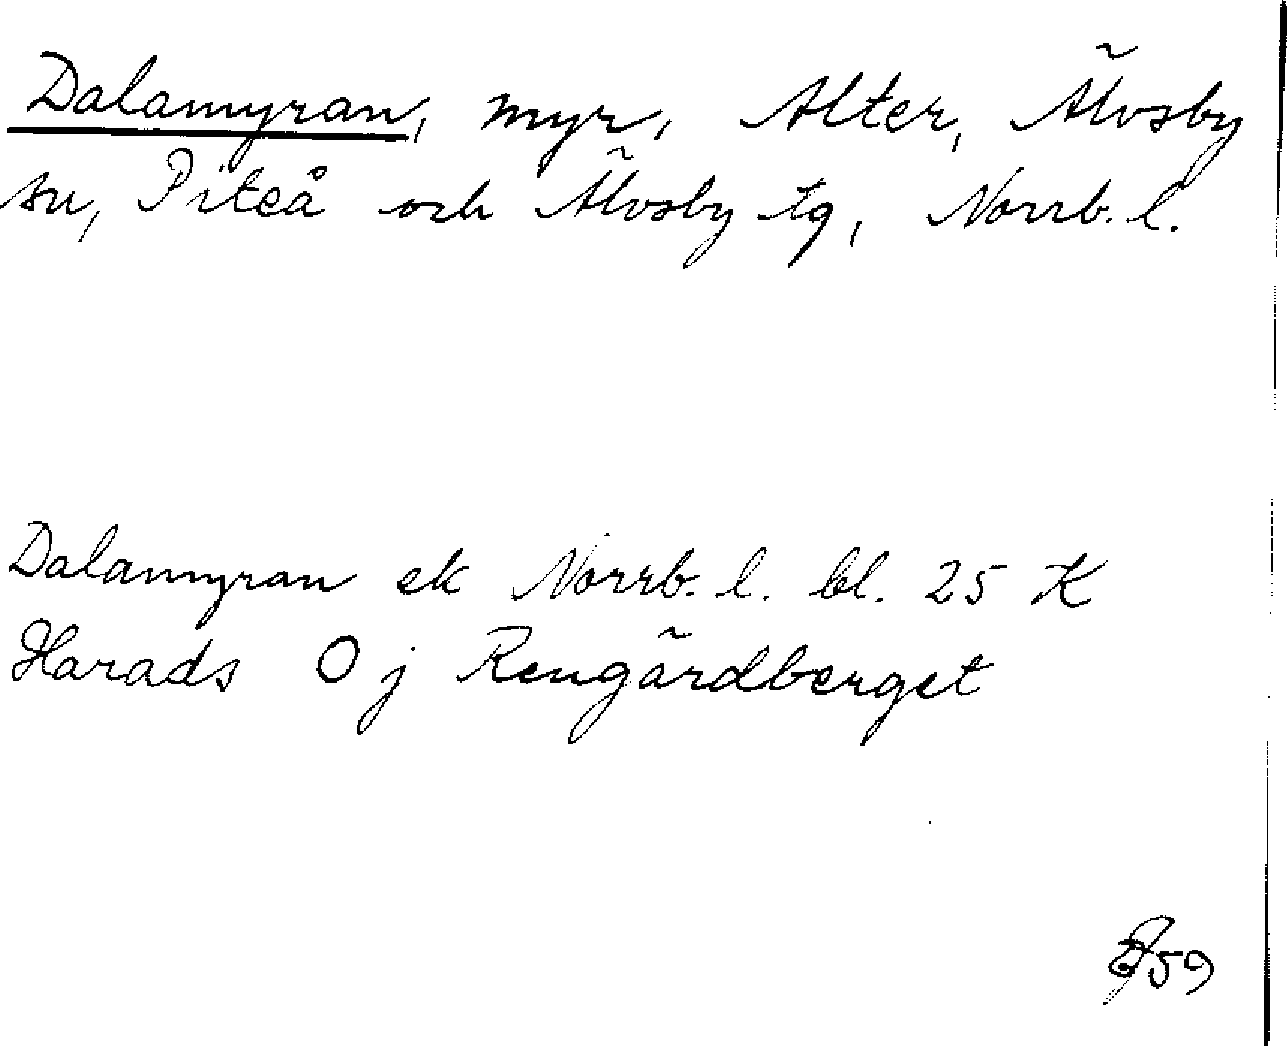 Dalamyran, myr, Alter, Älvsby
sn, Piteå och Älvsby tg, Norrb. l.
Dalamyran ek Norrb. l. bl. 25 K
Harads O j Rengärdberget
59